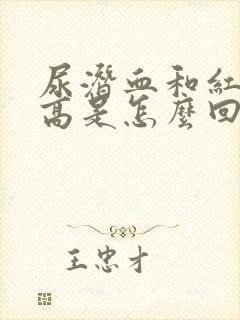 尿潛血和紅
高是怎麼回
王忠才